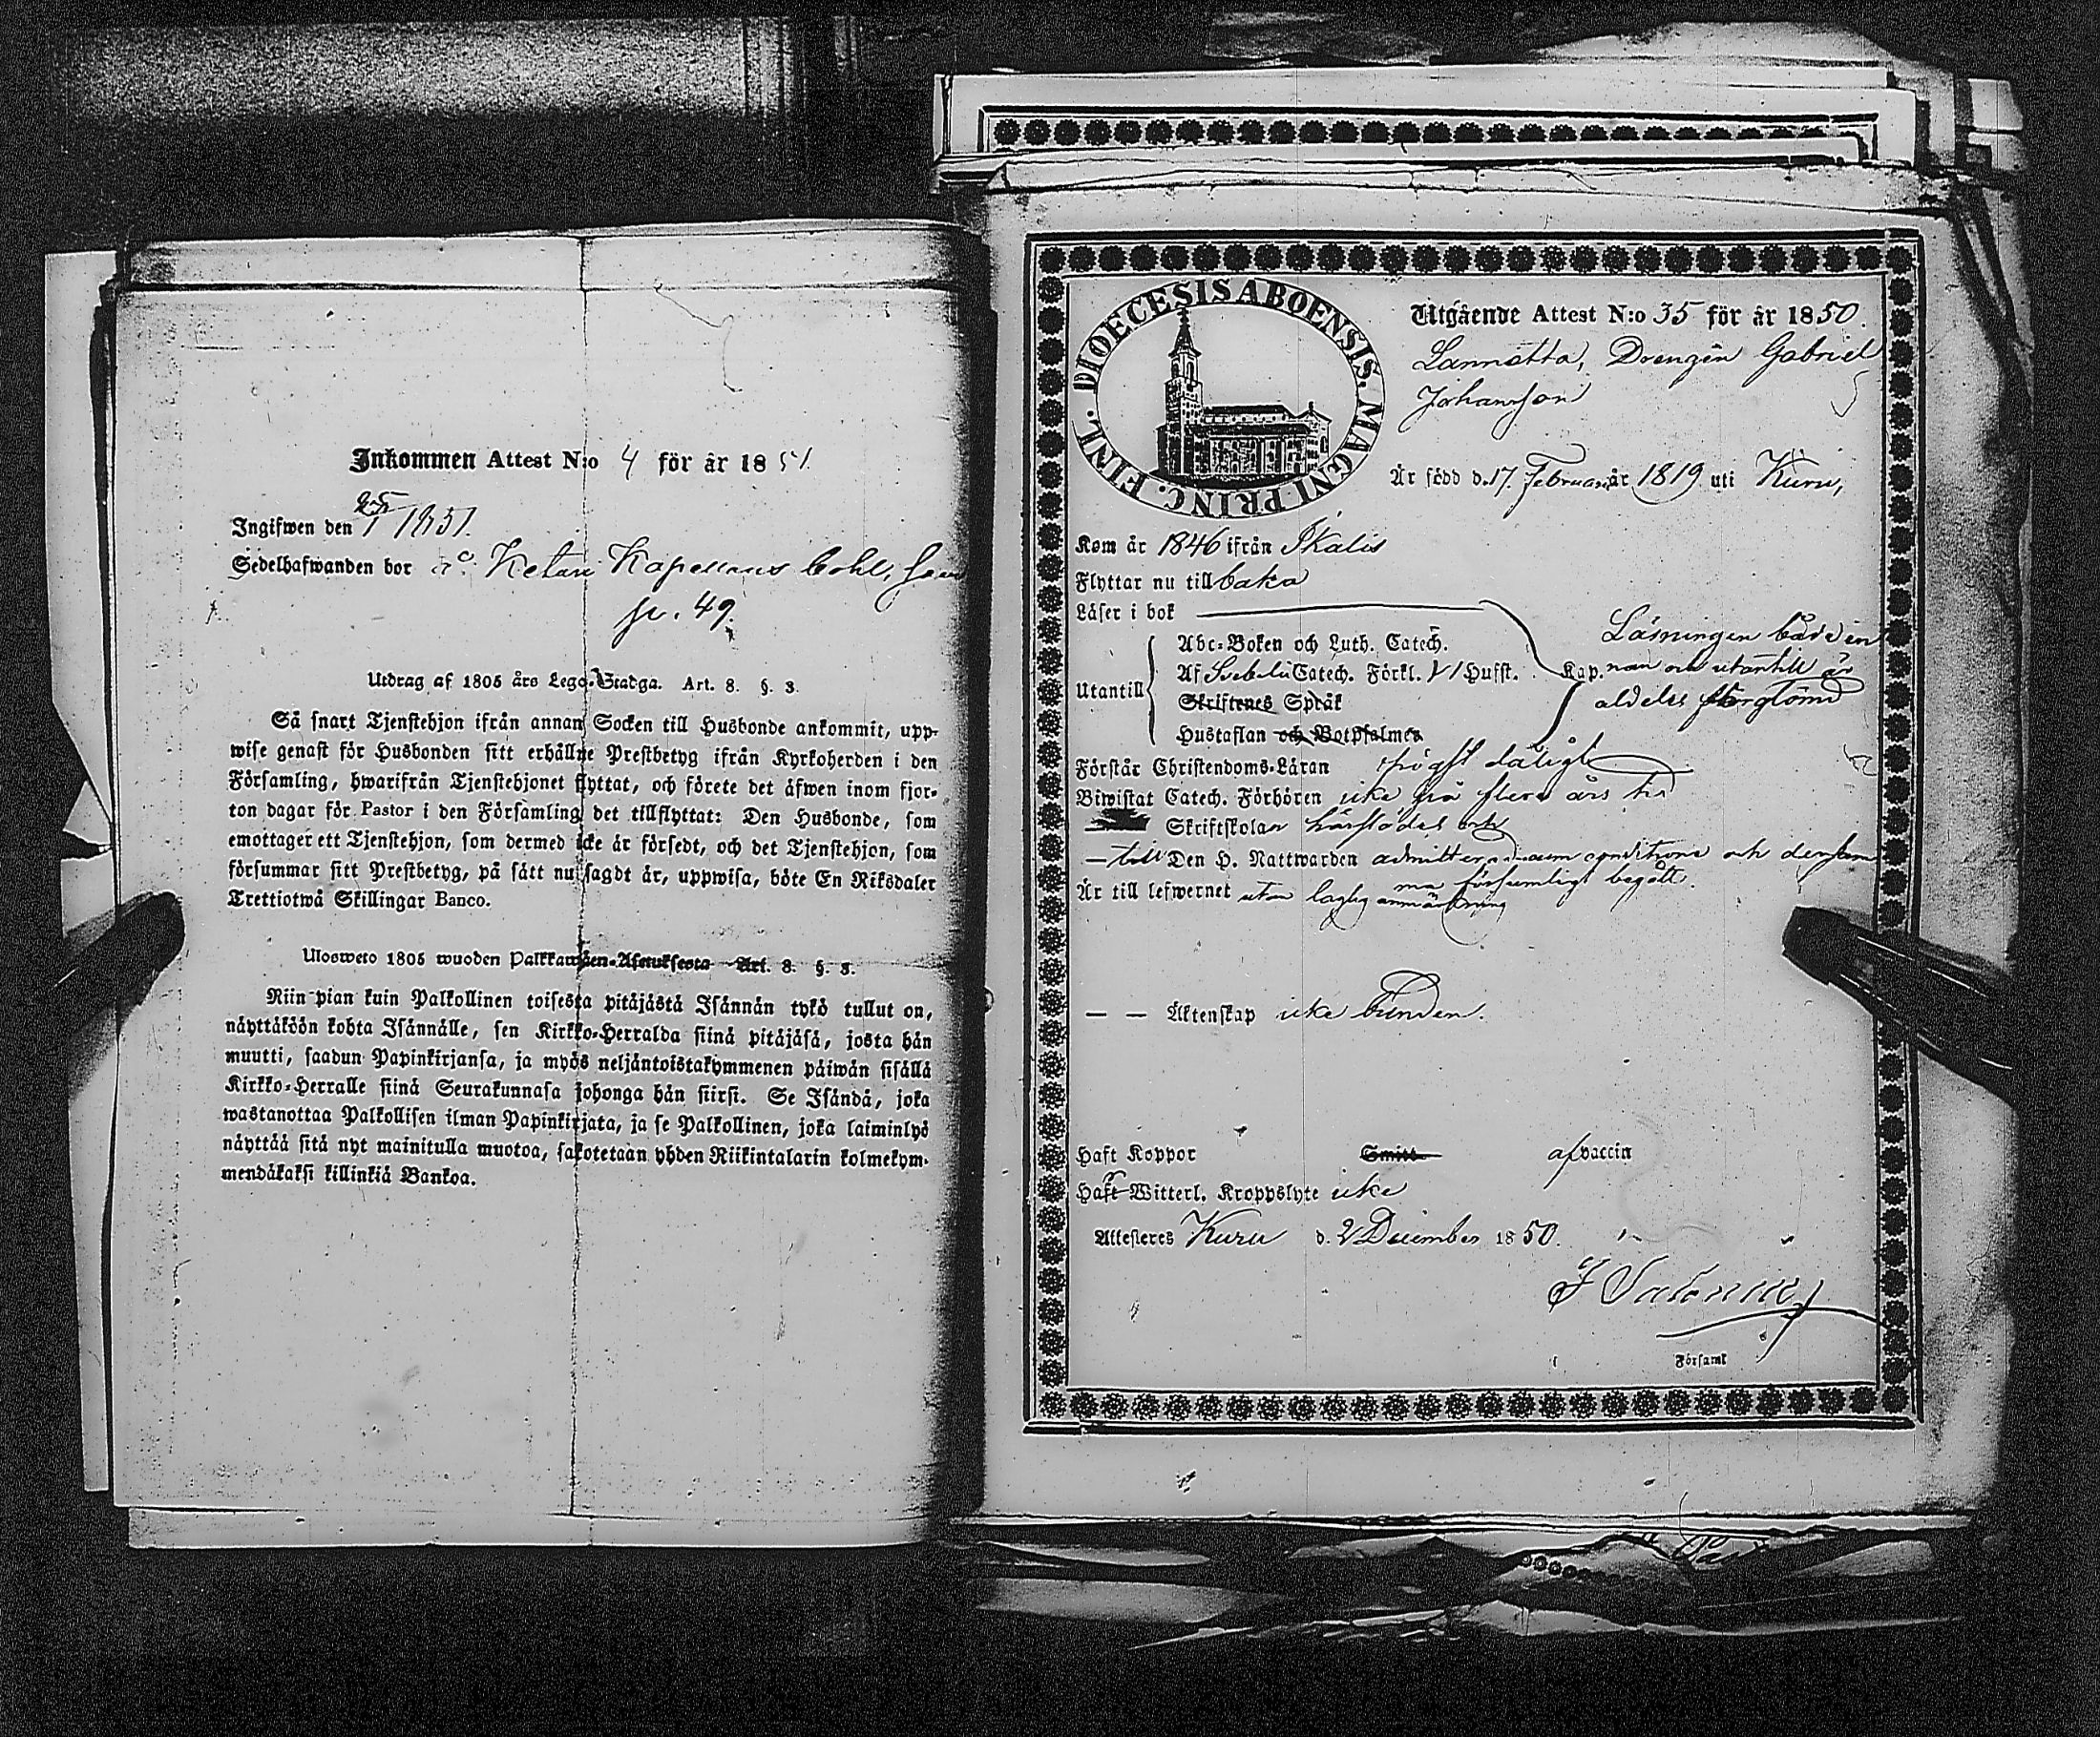 Inkommen Attest N:o 4 för år 1851.
Ingifwen den 25/1 1851.
Sedelhafwanden bor å Ketari Kapellans bohl,
p. 49.
Utdrag af 1805 års Lego-Stadga. Art. 8. §. 3.
Så snart Tjenstehjon ifrån annan Socken till Husbonde ankommit, upp-
wise genast för Husbonden sitt erhållne Prestbetyg ifrån Kyrkoherden i den
Församling, hwarifrån Tjenstehjonet flyttat, och förete det äfwen inom fjor-
ton dagar för Pastor i den Församling det tillflyttat: Den Husbonde, som
emottager ett Tjenstehjon, som dermed icke är försedt, och det Tjenstehjon, som
försummar sitt Prestbetyg, på sätt nu sagdt är, uppwisa, böte En Riksdaler
Trettiotwå Skillingar Banco.
Ulosweto 1805 wuoden Palkkawäen-Asetuksesta Art. 8. §. 3.
Niin pian kuin Palkollinen toisesta pitäjästä Isännän tykö tullut on,
näyttäköön kohta Isännälle, sen Kirkko-Herralda siinä pitäjäsä, josta hän
muutti, saadun Papinkirjansa, ja myös neljäntoistakymmenen päiwän sisällä
Kirkko-Herralle siinä Seurakunnasa johonga hän siirsi. Se Isändä, joka
wastanottaa Palkollisen ilman Papinkirjata, ja se Palkollinen, joka laiminlyö
näyttää sitä nyt mainitulla muotoa, sakotetaan yhden Riikintalarin kolmekym-
mendäkaksi killinkiä Bankoa.
DIOECESIS ABOENSIS. MAGNI PRINC. FINL.
Utgående Attest N:o 35 för år 1850.
Lannätta, Drengen Gabriel
Johansson
Är född d. 17. Februari år 1819 uti Kuru,
Kom år 1846 ifrån Ikalis
Flyttar nu tillbaka
Läser i bok
Läsningen både in
Abc-Boken och Luth. Catech.
Utantill
Af Svebelii Catech. Förkl. Hufst. Kap.
nan och utantill är
Skriftenes Språk
aldeles förglömd
Hustaflan och Botpsalmer
Förstår Christendoms-Läran högst dåligt
Biwistat Catech. Förhören icke på flera års tid
Skriftskolan
— till Den H. Nattwarden admitteras conditione och densam
ma försumligt begått.
Är till lefwernet utan laglig anmärkning
— — Äktenskap icke bunden.
Haft Koppor Smitt. af vaccin
Haft Witterl. Kroppslyte icke
Attesteres Kuru d. 2 December 1850.
Församl